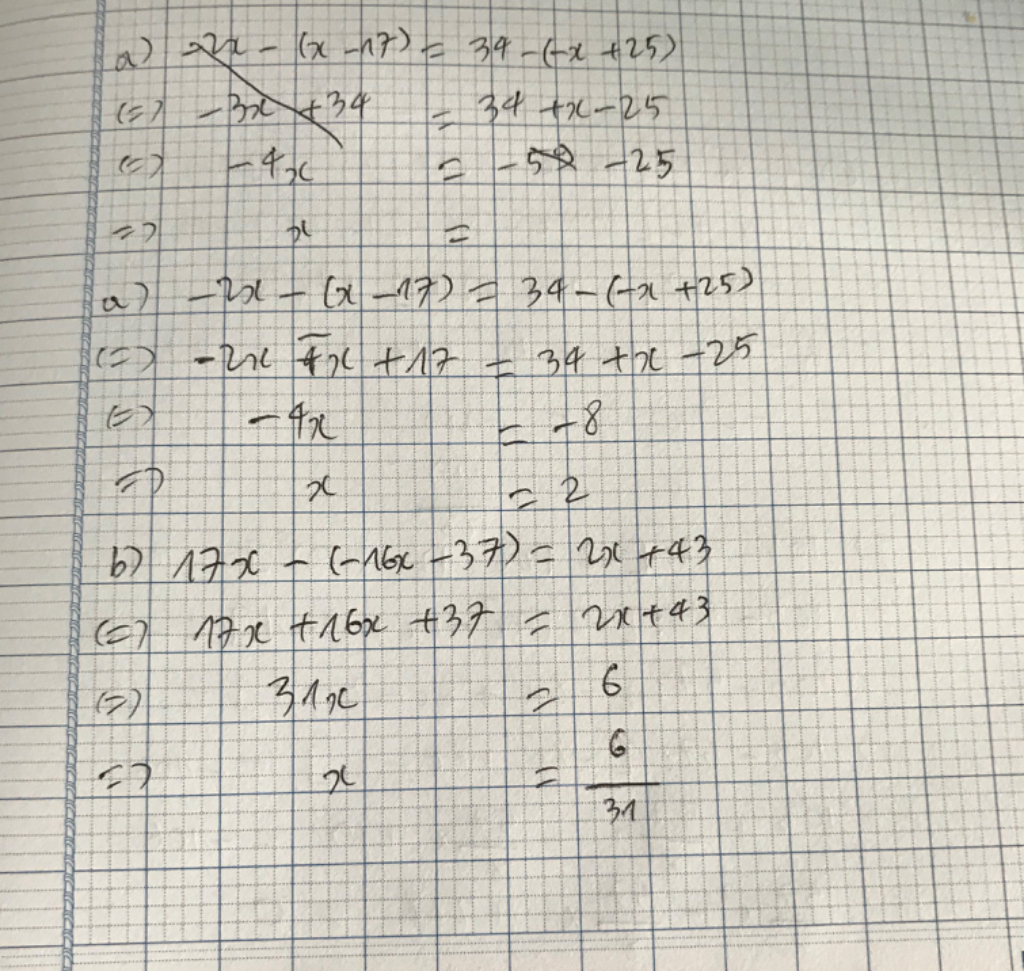 a) -2x - (x -17) = 34 -(-x +25)
(=) -3x +34 = 34 +x -25
(=) -4x = - -25
=) x =
a) -2x - (x -17) = 34 - (-x +25)
(=) -2x -x +17 = 34 +x -25
(=) -4x = -8
=) x = 2
b) 17x - (-16x -37) = 2x +43
(=) 17x +16x +37 = 2x +43
(=) 31x = 6
=) x = 6/31